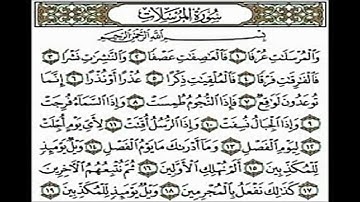 سُورَةُ الْمُرْسَلَات
بِسْمِ اللَّهِ الرَّحْمَٰنِ الرَّحِيمِ
وَالْمُرْسَلَاتِ عُرْفًا ١ فَالْعَاصِفَاتِ عَصْفًا ٢ وَالنَّاشِرَاتِ نَشْرًا ٣
فَالْفَارِقَاتِ فَرْقًا ٤ فَالْمُلْقِيَاتِ ذِكْرًا ٥ عُذْرًا أَوْ نُذْرًا ٦ إِنَّمَا
تُوعَدُونَ لَوَاقِعٌ ٧ فَإِذَا النُّجُومُ طُمِسَتْ ٨ وَإِذَا السَّمَاءُ فُرِجَتْ
٩ وَإِذَا الْجِبَالُ نُسِفَتْ ١٠ وَإِذَا الرُّسُلُ أُقِّتَتْ ١١ لِأَيِّ يَوْمٍ أُجِّلَتْ
١٢ لِيَوْمِ الْفَصْلِ ١٣ وَمَا أَدْرَاكَ مَا يَوْمُ الْفَصْلِ ١٤ وَيْلٌ يَوْمَئِذٍ
لِّلْمُكَذِّبِينَ ١٥ أَلَمْ نُهْلِكِ الْأَوَّلِينَ ١٦ ثُمَّ نُتْبِعُهُمُ الْآخِرِينَ
١٧ كَذَٰلِكَ نَفْعَلُ بِالْمُجْرِمِينَ ١٨ وَيْلٌ يَوْمَئِذٍ لِّلْمُكَذِّبِينَ ١٩